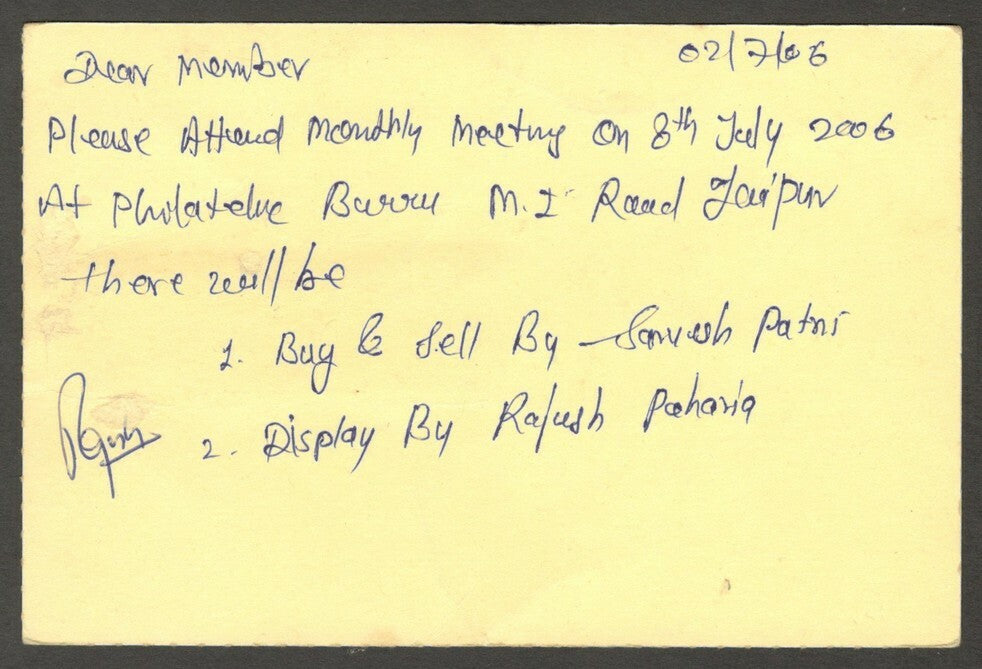 02/7/06
Dear Member
Please Attend Monthly Meeting On 8th July 2006
At Philatelic Burru M.I Road Jaipur
there will be
1. Buy & Sell By Patni
2. Display By Rajesh Paharia